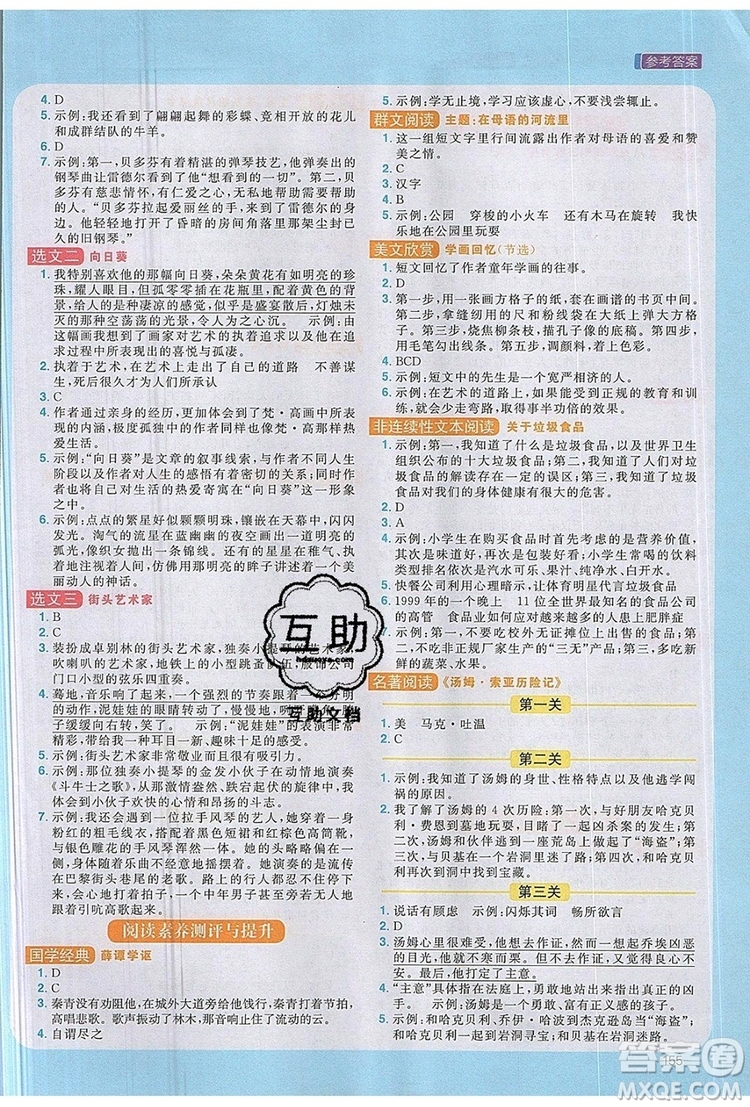 参考答案
4. D
5. 示例:我还看到了翩翩起舞的彩蝶、竞相开放的花儿
和成群结队的牛羊。
6. D
7. 示例:第一,贝多芬有着精湛的弹琴技艺,他弹奏出的
钢琴曲让雷德尔看到了他“想看到的一切”。第二,
贝多芬有慈悲情怀,有仁爱之心,无私地帮助需要帮助
的人。“贝多芬扶起爱丽丝的时候,也扶起了雷德尔太
太。他轻轻地打开了昏暗的房间角落里布满灰尘、已
久的旧钢琴。”
选文二 向日葵
1. 我特别喜欢他的那幅向日葵,朵朵黄花有如明亮的珍
珠,耀人眼目,但孤零零插在花瓶里,配着黄色的背
景,给人的是种凄凉的感觉,似乎是盛宴散后,灯烛未
灭的那种空荡荡的光景,令人为之心沉。 示例:由
这幅画我想到了画家对艺术的执着追求以及由这种
追求中所表现出的喜悦与孤凄。
2. 执着于艺术,在艺术上走出了自己的道路 不善谋
生,死后很久才为人们所承认
3. C
4. 作者通过亲身的经历,更加体会到了梵·高画中所表
现的内涵,极度孤独中的作者同样也像梵·高一样热
爱艺术。
5. 示例:“向日葵”是文章的叙事线索,与作者不同人生
阶段以及对人生的感悟有着密切的关系。其次,作者
也将自己对生活的热爱寄寓在“向日葵”这一形象
之中。
6. 示例:点点的繁星好似颗颗明珠,镶嵌在天幕中,闪闪
发光。淘气的流星在蓝幽幽的夜空画出一道道明亮的
弧光,像织女抛出一条条锦线。还有的星星连缀在一
起,排列整齐有序。仿佛那轻灵的眸子计谋着一个美
丽动人的神话。
选文三 街头艺术家
1. B
2. B
3. 装扮成卓别林的街头艺术家,独奏小提琴的艺术家,
吹喇叭的行吟艺术家,地铁上的小型跳蚤队伍,服饰公司
门口小型的弦乐四重奏。
4. 蓦地,奇迹发生了,一个强烈的节奏伴着一个分明
的动作,泥娃娃的眼睛转动了,慢慢地,咧开嘴,脖
子缓缓向右转,笑了。 示例:“泥娃娃”的表演非常
精彩,带给我一种耳目一新、趣味十足的感觉。
5. 示例:街头艺术家非常敬业而且对艺术执着。
6. 示例:那位独奏小提琴的金发小伙子在动情地演奏
《斗牛士之歌》,从那激情盎然、跌宕起伏的旋律中,我
体会到小伙子欢快的心情和昂扬的斗志。
7. 示例:今早,我遇到一位拉手风琴的艺术家,她穿着一身
粉红的粗毛线衣,配搭着黑色短裙和红棕色高筒靴,
与银色雕花的手风琴浑然一体。她的头略略偏着,
闭着眼睛随着乐曲而摇摆着。她演奏的是流传在
巴黎街头巷尾的老歌。路上的行人会走到她身边,
跟着引吭高歌起来。
阅读素养测评与提升
国学经典 薛谭学讴
1. D
2. D
3. 秦青没有劝阻他,在城外大道旁给他送行,秦青打着节拍,
高唱悲歌。歌声振动了林木,那音响止住了流动的云。
4. 自谓尽之
5. 示例:学无止境,学习应该虚心,不要浅尝辄止。
群文阅读 主题:在母语的河流里
1. 这一组短文字里行间流露出作者对母语的喜爱和赞
美之情。
2. C
3. 汉字
4. B
5. 示例:公园 穿梭的小火车 还有木马在旋转 我快
乐地在公园里游玩
美文欣赏 学画回忆(节选)
1. 短文回忆了作者童年学画的往事。
2. C
3. 第一步,用一张画方格子的纸,套在画谱的书页中间。
第二步,拿缝纫用的尺和粉线袋在大纸上弹大方格
子。第三步,烧焦柳条枝,描孔子像的底稿。第四步,
用毛笔勾出线条。第五步,调颜料,着色。
4. BCD
5. 示例:短文中的先生是一个宽严相济的人。
6. 示例:在艺术的道路上,如果我们能得到正规的教育和训
练,就会少走弯路,取得事半功倍的效果。
非连续性文本阅读 关于垃圾食品
1. 示例:第一,我知道了什么是垃圾食品以及世界卫生
组织公布的十大垃圾食品;第二,我知道了人们对垃
圾食品的解读存在一定的误区;第三,我知道了人们对
垃圾食品的几种解释。
2. D
3. A
4. 示例:小学生在购买食品时首先考虑的是营养价值,
其次是味道好,再次是包装好看。小学生常喝的饮料
类型排名依次是汽水可乐、果汁、纯净水、白开水。
5. 快餐公司利用心理暗示,让体育明星代言垃圾食品
6. 1999年的一个晚上 11位全世界最知名食品公司
的高管 食品业如何应对越来越多的人患上肥胖症
7. 示例:第一,不要吃校外无证摊位的零食;第二,不要
吃非正规厂家生产的“三无”产品;第三,要多吃新
鲜的蔬菜、水果。
名著阅读 《汤姆·索亚历险记》
第一关
1. 美 马克·吐温
2. C
第二关
1. 示例:我知道了汤姆的身世、性格特点,以及他逃学闯
祸的原因。
2. 我了解了汤姆的4次历险;第一次,与好友哈克贝
利·费恩到墓地玩耍,目睹了一起凶杀案的发生;第
二次,汤姆和伙伴离开村子出走当了“海盗”;第三
次,与贝基在一个岩洞里迷了路;第四次,与哈克贝利
再次到岩洞中找到了宝藏。
第三关
1. 说话有顾虑 示例:闪烁其词
2. D
3. 汤姆心里很矛盾,他想去作证,然而一想到凶残的印
第安·乔,他就不寒而栗。但他又不想失去作证的机
会,因为他不想让好人蒙冤。
4. “主意”具体指在法庭上,勇敢地站出来指出真正的凶
手。 示例:汤姆是一个勇敢、富有正义感的孩子。
5. 示例:和哈克贝利、乔伊·哈波到杰克逊岛当“海盗”;
和贝基岩洞寻宝;和哈克贝利寻宝。
互助
互助文档
155
答案圈
MXQE.COM